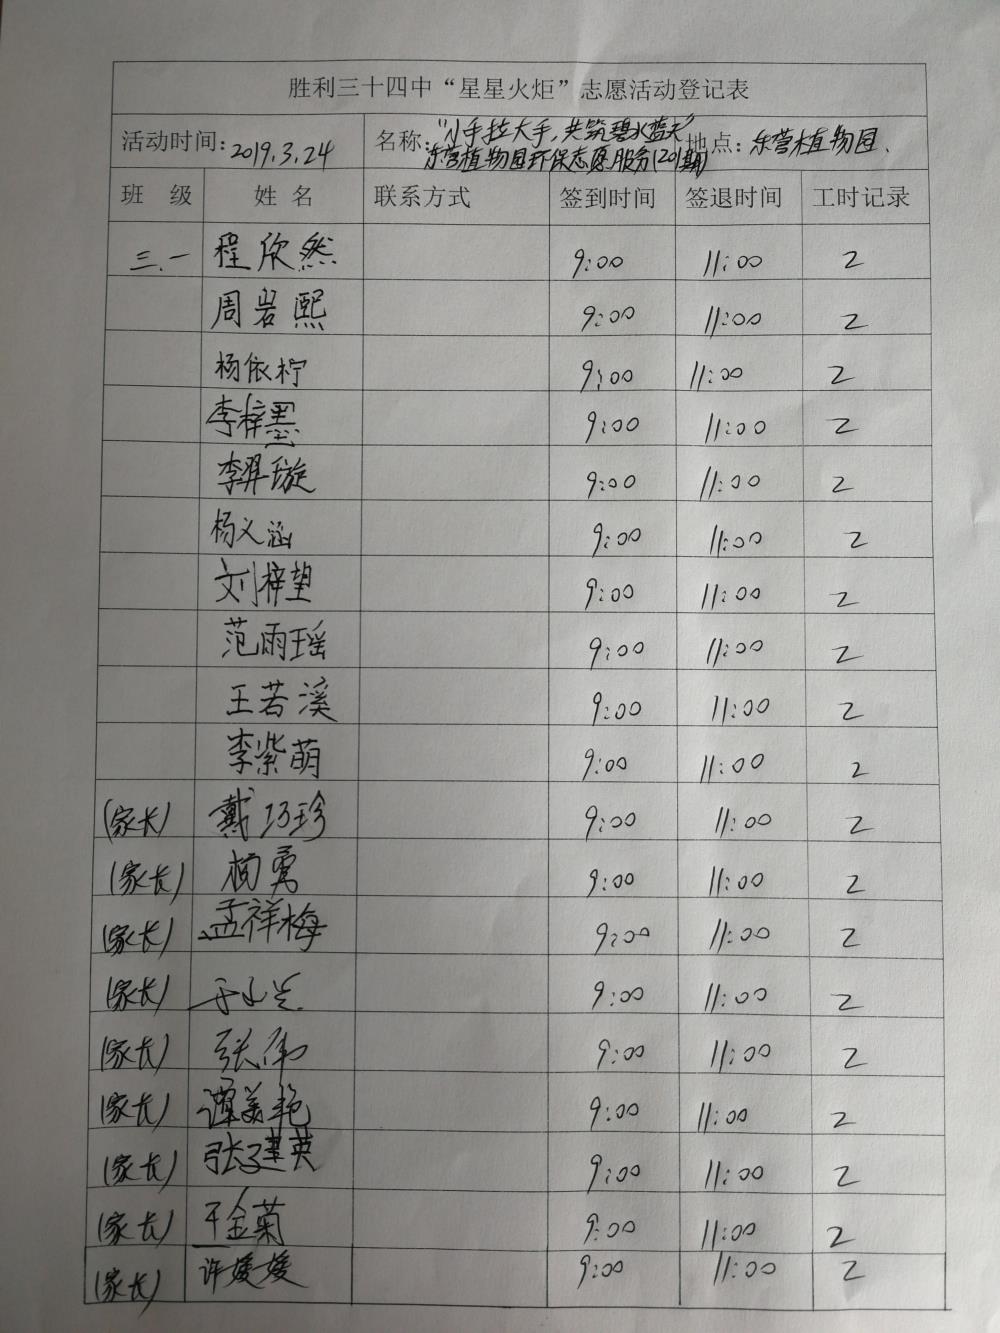 胜利三十四中“星星火炬”志愿活动登记表
活动时间: 2019.3.24 名称: “小手拉大手,共筑碧水蓝天” 地点: 东营植物园.
东营植物园环保志愿服务(201期)
班 级 姓 名 联系方式 签到时间 签退时间 工时记录
三.一 程欣然 9:00 11:00 2
周岩熙 9:00 11:00 2
杨依柠 9:00 11:00 2
李梓墨 9:00 11:00 2
李羿璇 9:00 11:00 2
杨义涵 9:00 11:00 2
刘梓望 9:00 11:00 2
范雨瑶 9:00 11:00 2
王若溪 9:00 11:00 2
李紫萌 9:00 11:00 2
(家长) 戴巧珍 9:00 11:00 2
(家长) 杨勇 9:00 11:00 2
(家长) 孟祥梅 9:00 11:00 2
(家长) 于小兰 9:00 11:00 2
(家长) 张伟 9:00 11:00 2
(家长) 谭美艳 9:00 11:00 2
(家长) 张建英 9:00 11:00 2
(家长) 王金菊 9:00 11:00 2
(家长) 许媛媛 9:00 11:00 2